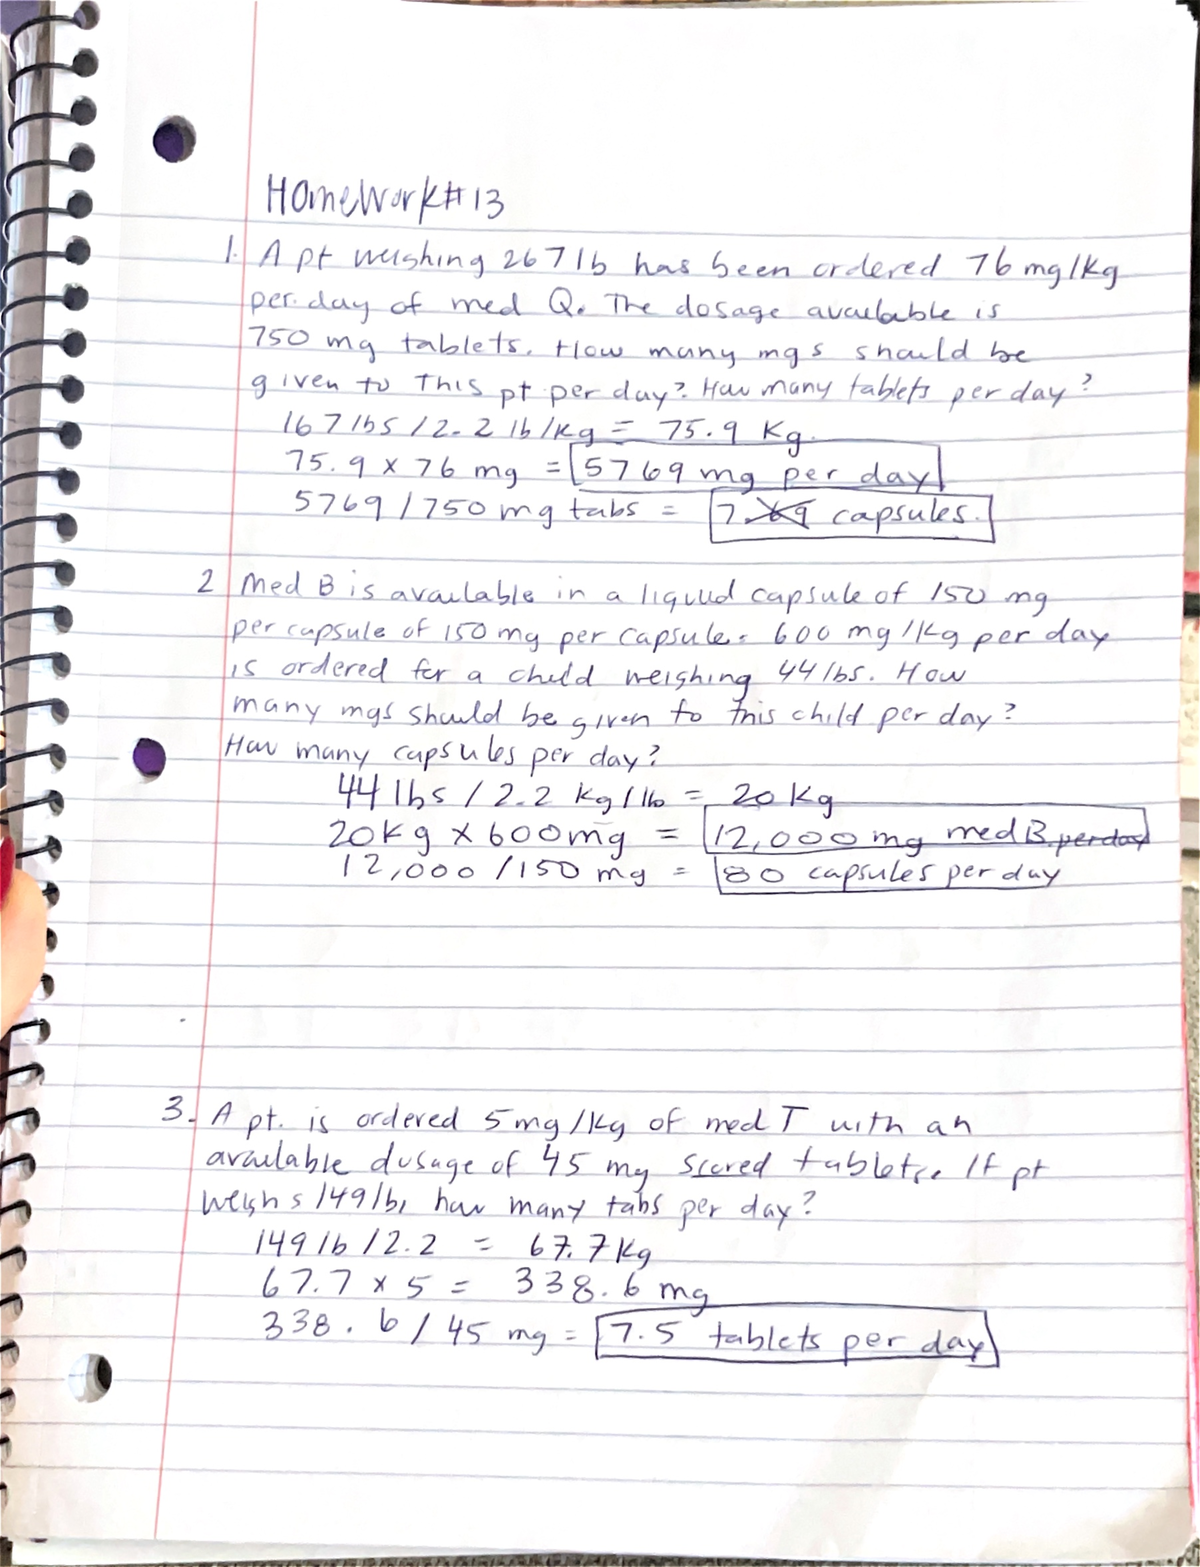 Homework #13
1. A pt weighing 267 lb has been ordered 76 mg/kg
per day of med Q. The dosage available is
750 mg tablets. How many mgs should be
given to this pt per day? How many tablets per day?
167 lbs / 2.2 lb/kg = 75.9 Kg.
75.9 x 76 mg = 5769 mg per day
5769 / 750 mg tabs = 7.69 capsules.
2 Med B is available in a liquid capsule of 150 mg
per capsule of 150 mg per capsule. 600 mg/kg per day
is ordered for a child weighing 44 lbs. How
many mgs should be given to this child per day?
How many capsules per day?
44 lbs / 2.2 kg/lb = 20 kg
20kg x 600mg = 12,000 mg med B per day
12,000 / 150 mg = 80 capsules per day
3. A pt. is ordered 5 mg/kg of med T with an
available dosage of 45 mg scored tablets. If pt
weighs 149 lb, how many tabs per day?
149 lb / 2.2 = 67.7 kg
67.7 x 5 = 338.6 mg
338.6 / 45 mg = 7.5 tablets per day